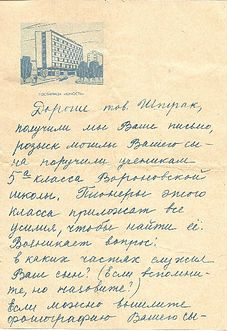 ГОСТИНИЦА «ЮНОСТЬ»
Дорогие тов. Штрак,
получили мы Ваше письмо,
розыск могилы Вашего сы-
на поручили ученикам
5го класса Вороновской
школы. Пионеры этого
класса приложат все
усилия, чтобы найти её.
Возникает вопрос:
в каких частях служил
Ваш сын? (Если вспомни-
те, то назовите?)
Если можно вышлите
фотографию Вашего сы-